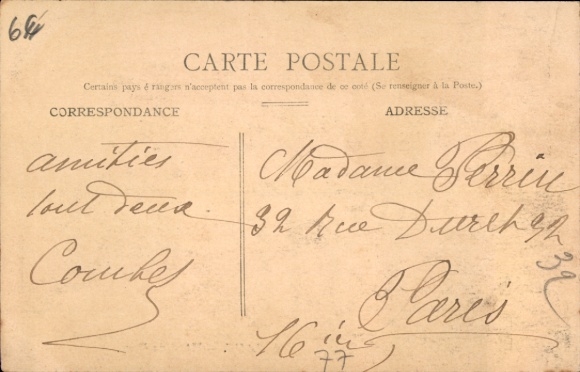 64
CARTE POSTALE
Certains pays é rangers n'acceptent pas la correspondance de ce coté (Se renseigner à la Poste.)
CORRESPONDANCE
amitiés
tout deux
Combes
ADRESSE
Madame Perrin
32 Rue Duret 32
Paris
16 ie
77
39